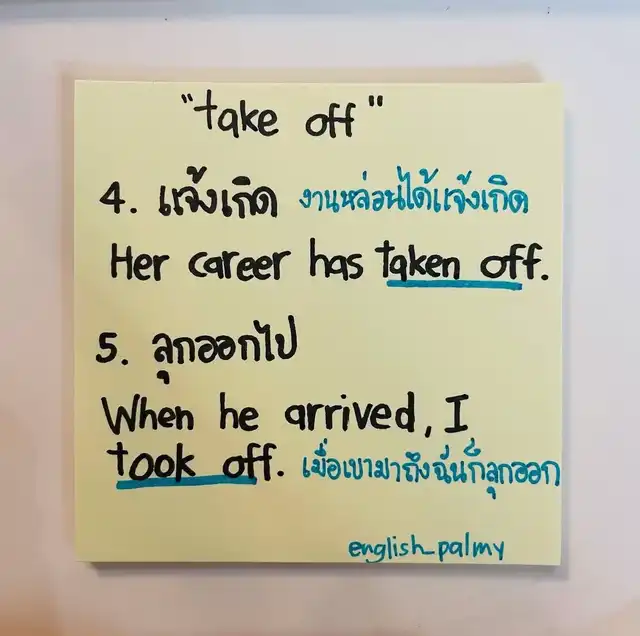 "take off"
4. แจ้งเกิด งานหล่อนได้แจ้งเกิด
Her career has taken off.
5. ลุกออกไป
When he arrived, I
took off. เมื่อเขามาถึงฉันก็ลุกออก
english_palmy